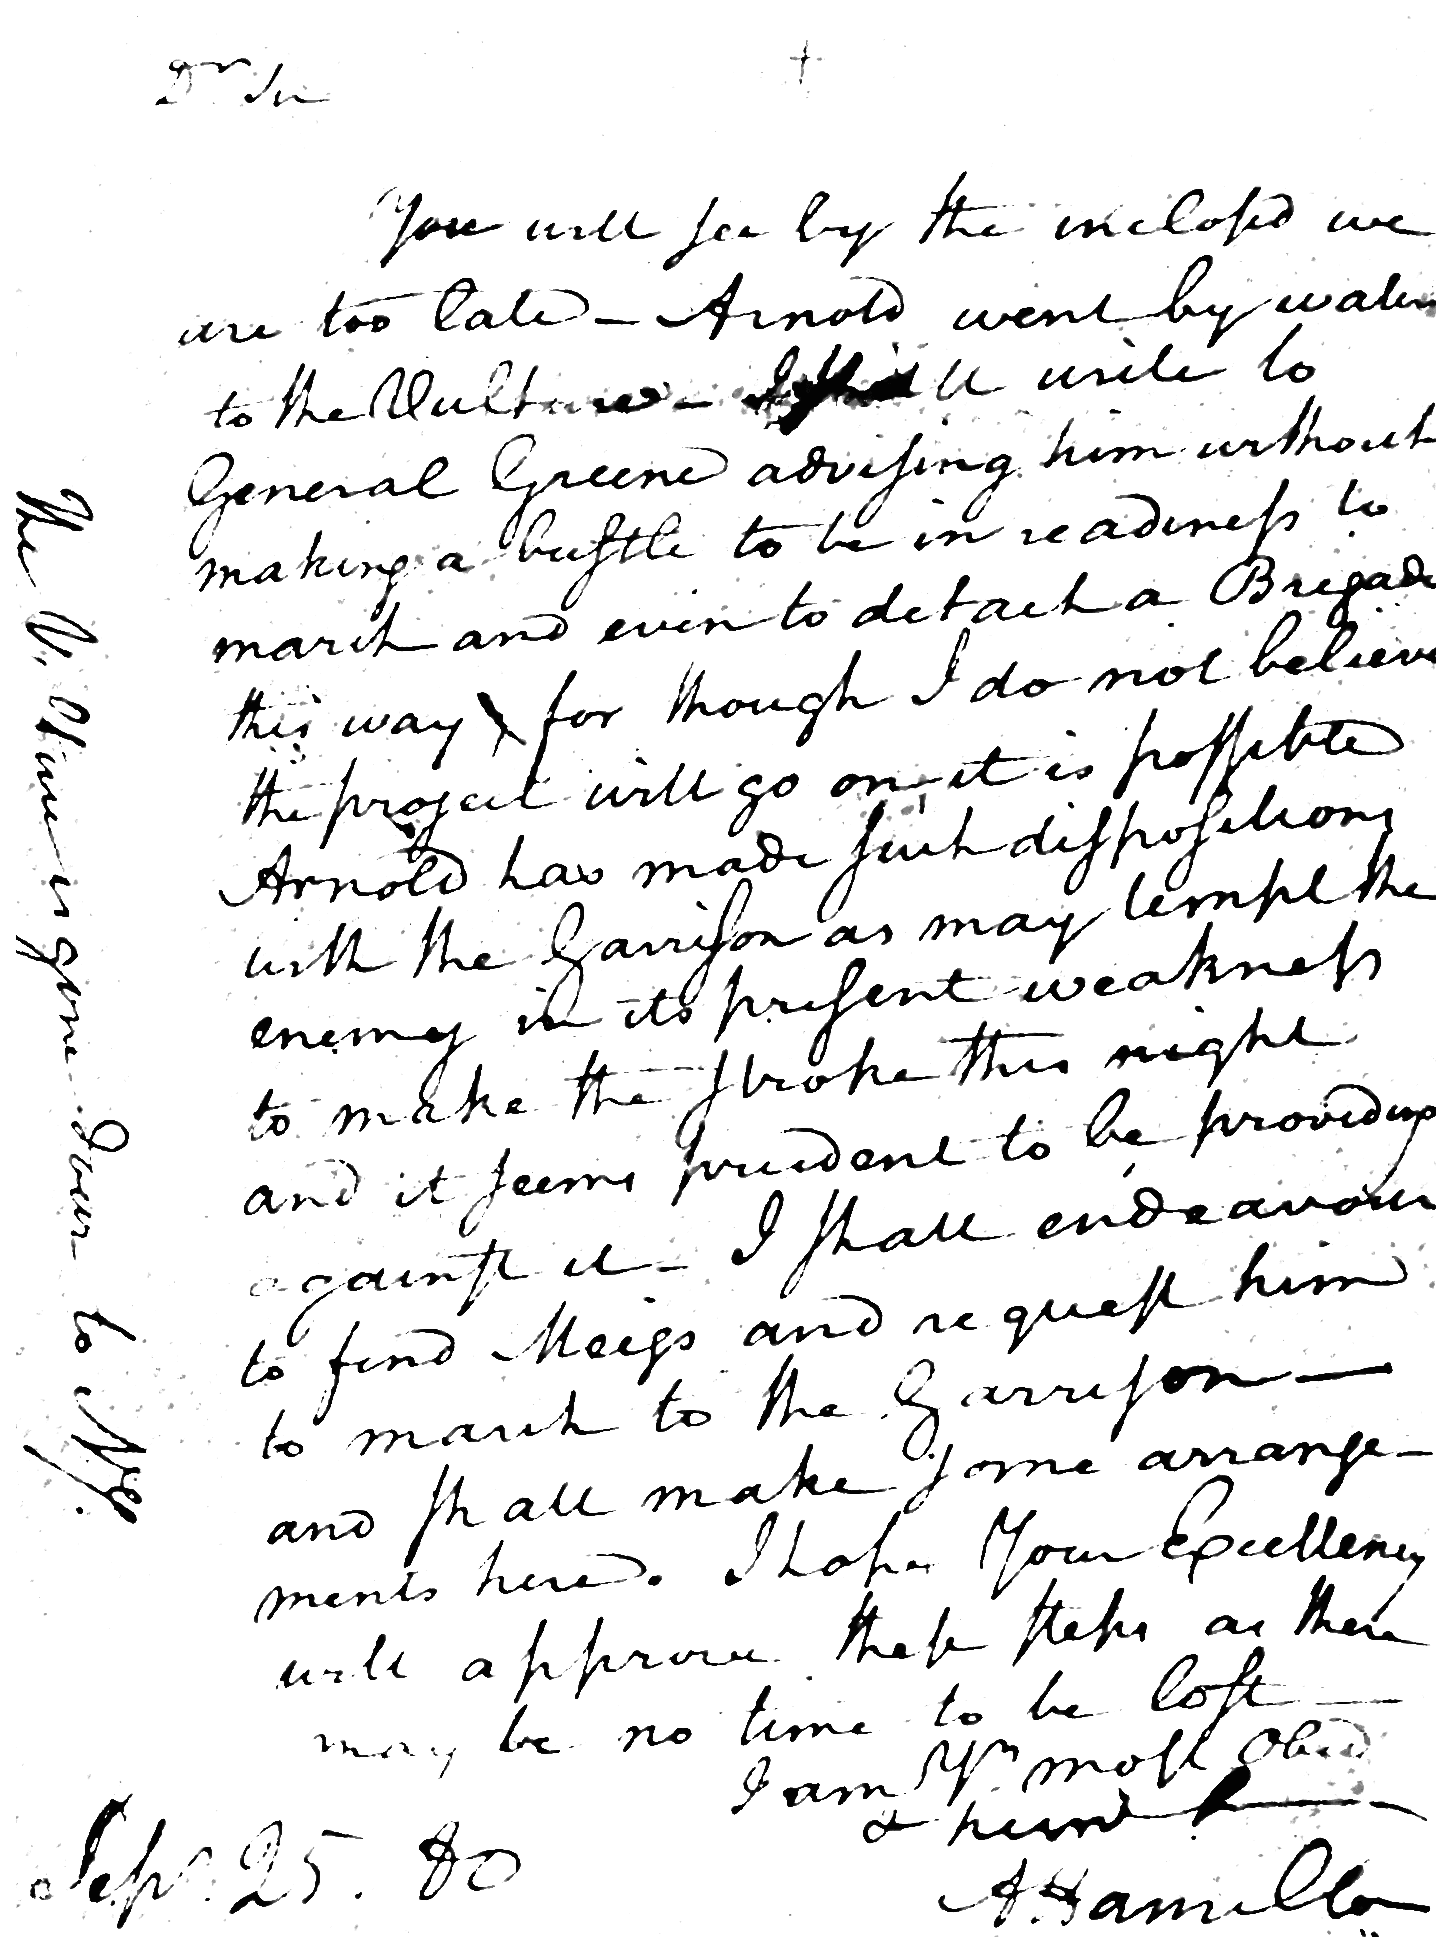 Dr Sir
You will see by the inclosed we
are too late – Arnold went by water
to the Vulture – I shall write to
General Greene advising him without
making a bustle to be in readiness to
march and even to detach a Brigade
this way, for though I do not believe
the project will go on it is possible
Arnold has made such dispositions
with the Garrison as may tempt the
enemy in its present weakness
to make the stroke this night
and it seems prudent to be providing
against it – I shall endeavour
to find Meigs and request him
to march to the Garrison —
and shall make some arrange-
ments here. I hope Your Excellency
will approve these steps as there
may be no time to be lost —
I am Yr most Obed
& hum
A Hamilton
Sepr. 25. 80
The V. is gone down to N